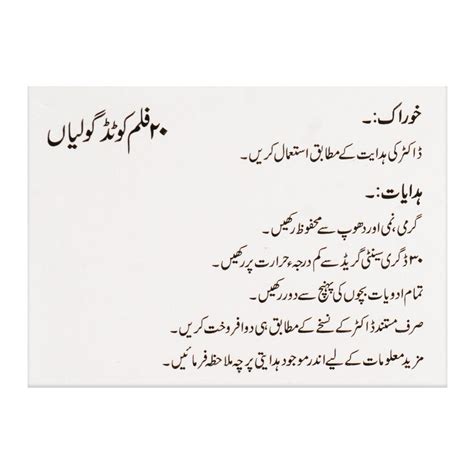 ۲۰ فلم کوٹڈ گولیاں
خوراک:۔
ڈاکٹر کی ہدایت کے مطابق استعمال کریں۔
ہدایات:۔
گرمی، نمی اور دھوپ سے محفوظ رکھیں۔
۳۰ ڈگری سینٹی گریڈ سے کم درجہء حرارت پر رکھیں۔
تمام ادویات بچوں کی پہنچ سے دور رکھیں۔
صرف مستند ڈاکٹر کے نسخے کے مطابق ہی دوا فروخت کریں۔
مزید معلومات کے لیے اندر موجود ہدایتی پرچہ ملاحظہ فرمائیں۔